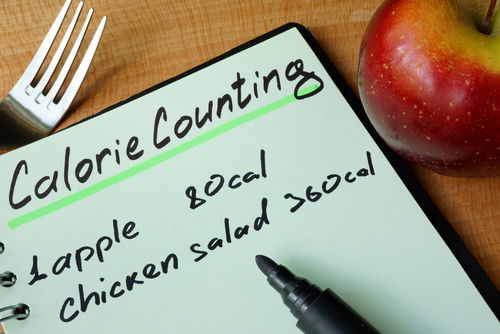 Calorie Counting
1 apple 80cal
chicken salad 360cal